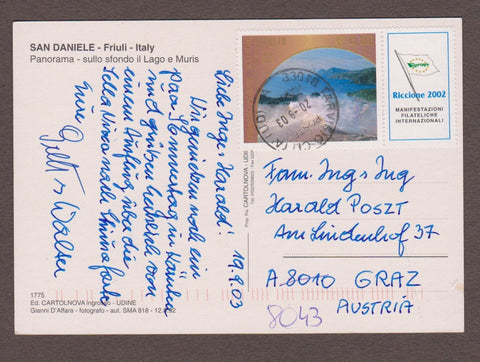 SAN DANIELE - Friuli - Italy
Panorama - sullo sfondo il Lago e Muris
19.9.03
Liebe Inge, Harald!
Wir genießen noch ein
paar Sommertag in
und grüßen herzlich von
einem Ausflug über die
Sella Nevea nach
Eure
Walter
1775
Ed. CARTOLNOVA Ingrosso - UDINE
Gianni D'Affara - fotografo - aut. SMA 818 - 12.
Prop. Ris. CARTOLNOVA - UDINE
33018
20-9 03
Riccione 2002
MANIFESTAZIONI
FILATELICHE
INTERNAZIONALI
Fam. Ing. Ing
Harald POSZT
Am Lindenhof 37
A 8010 GRAZ
AUSTRIA
8043